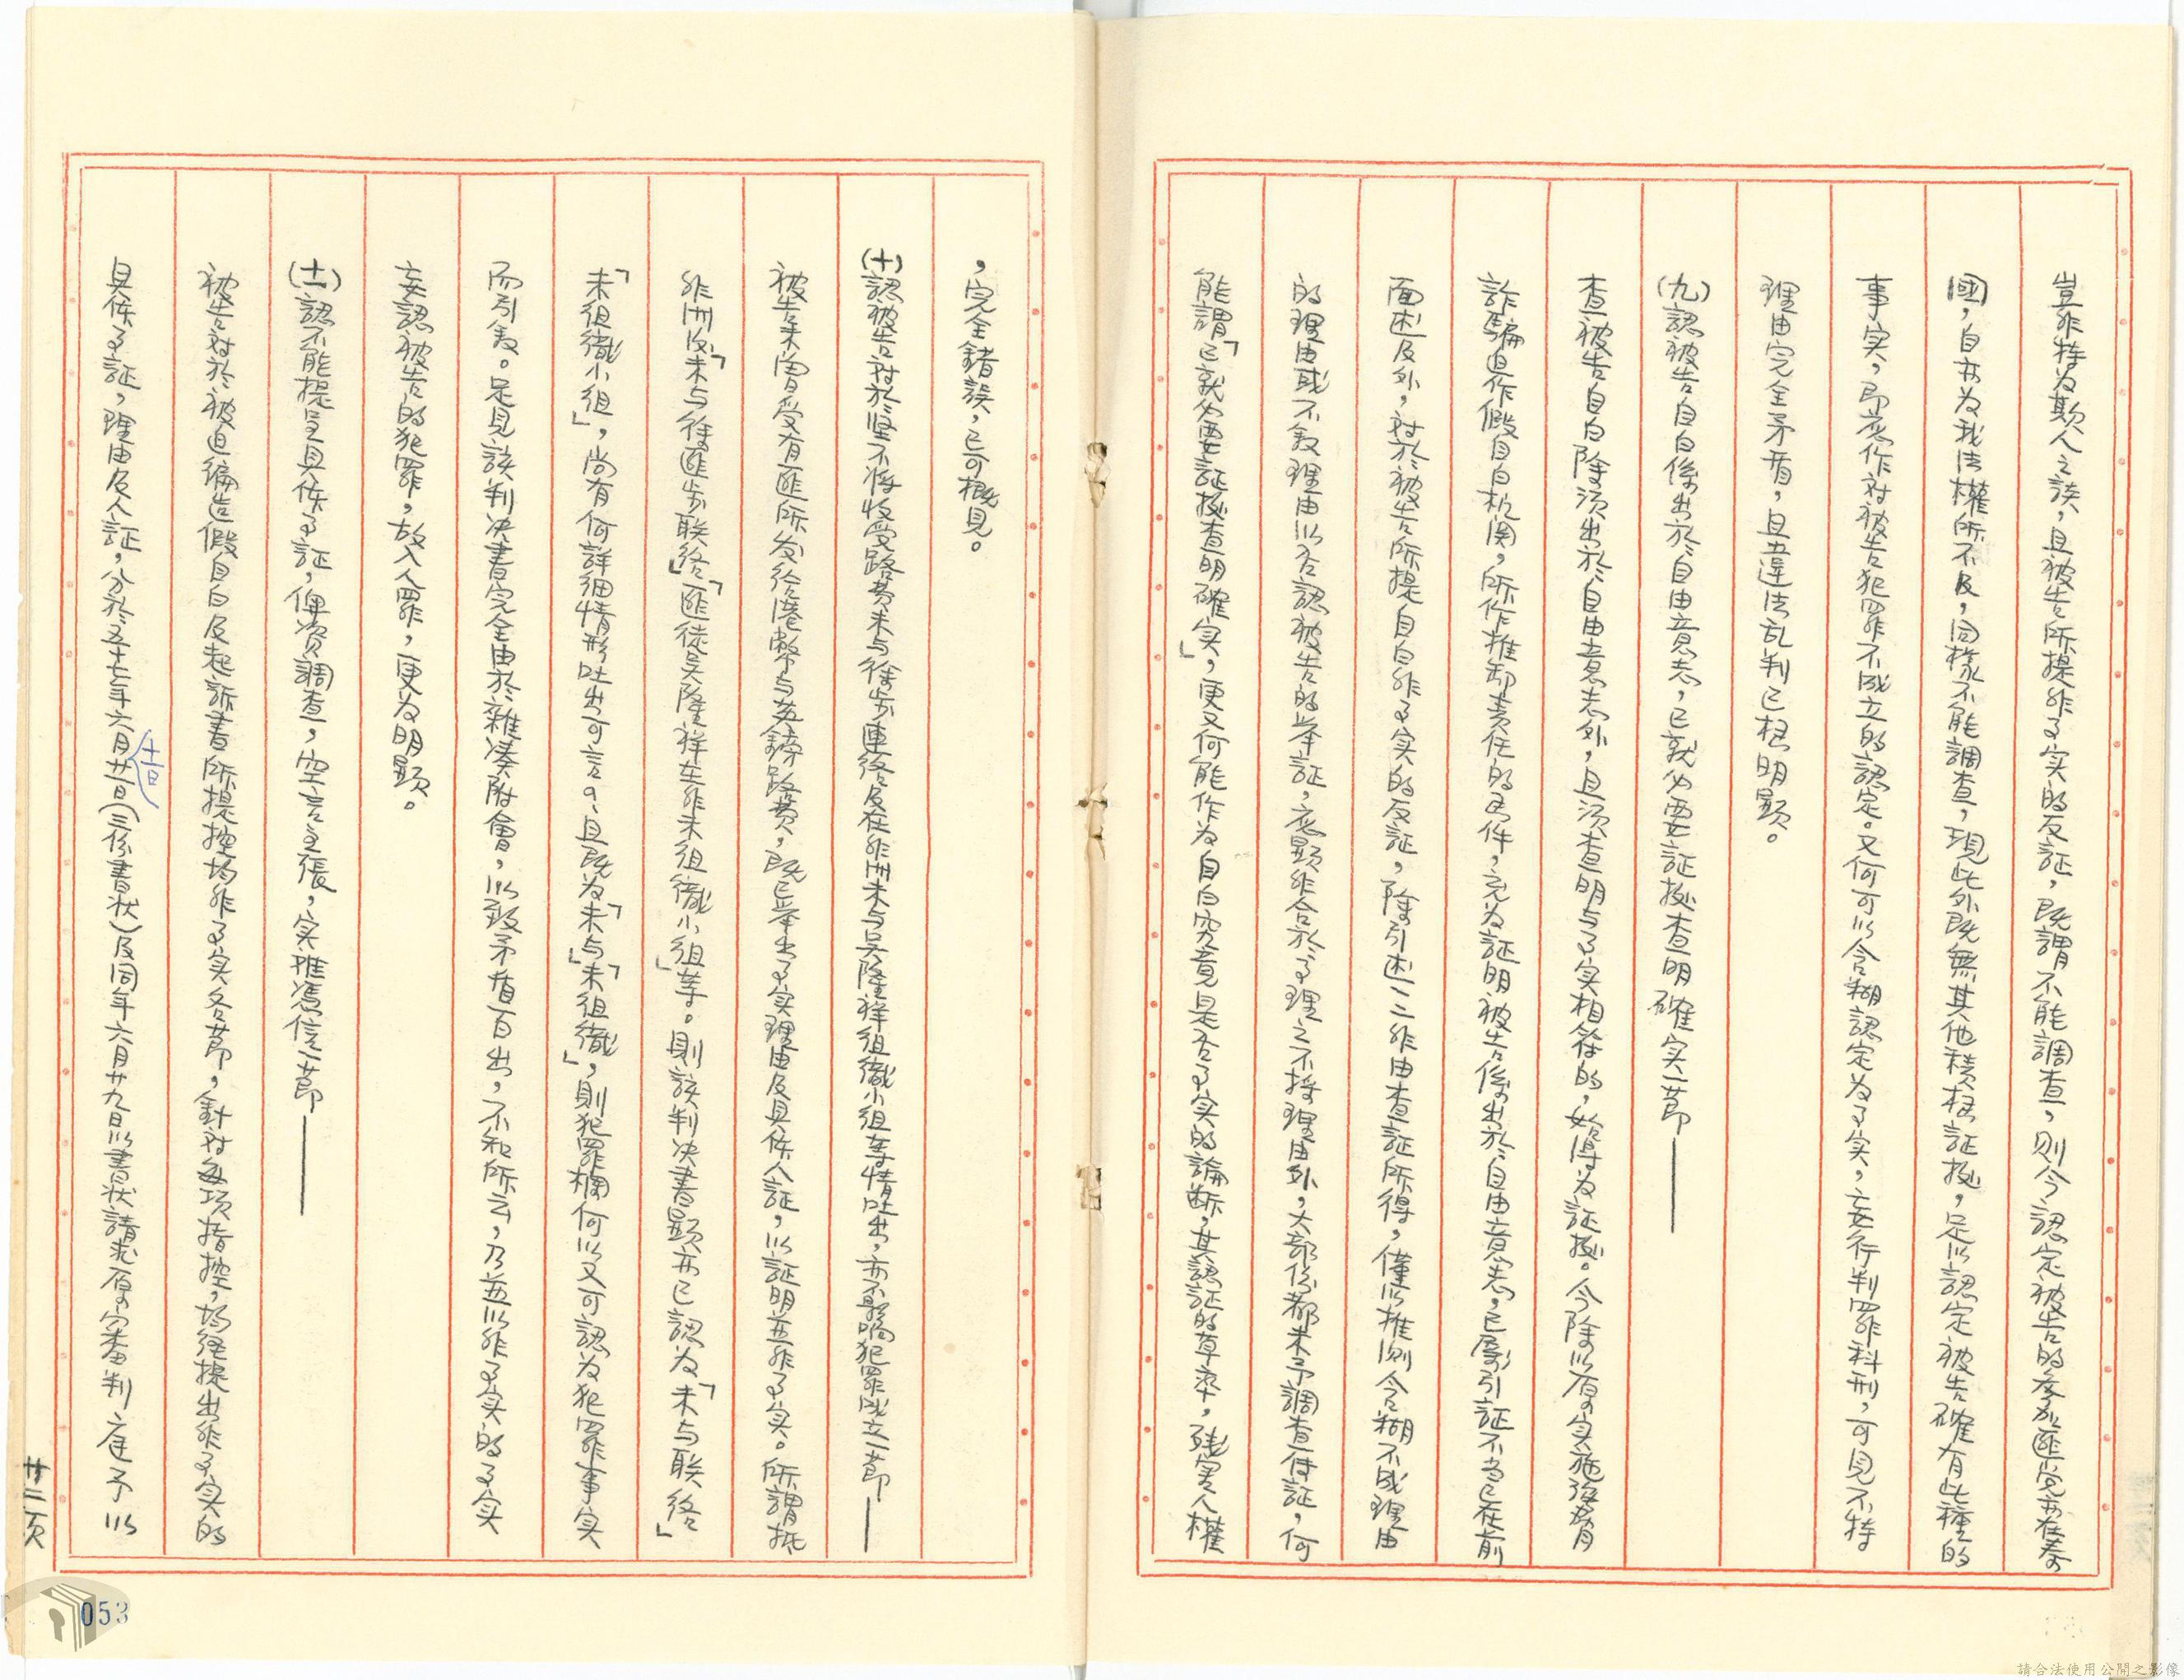 豈非特為欺人之談，且被告所提非事实的反証，既謂不能調查，則今認定被告的參加匪党亦在泰
國，自亦為我法權所不及，同樣不能調查，現此外既無其他積極証據，足以認定被告確有此種的
事实，即應作对被告犯罪不成立的認定。又何可以含糊認定为事实，妄行判罪科刑，可見不特
理由完全矛盾，且違法乱判已极明顯。
(九)認被告自白係出於自由意志，已就必要証據查明確实一節——
查被告自白除須出於自由意志外，且須查明与事实相符的，始得为証據。今除以原实施強脅
詐騙迫作假自白机関，所作推卸責任的函件，充为証明被告係出於自由意志，已屬引証不当已在前
面述及外，对於被告所提自白非事实的反証，除引述一二非由查証所得，僅以推測含糊不成理由
的理由或不敘理由以否認被告的举証，應顯非合於事理之不採理由外，大部份都未予調查何証，何
能謂「已就必要証據查明確实」，更又何能作为自白究竟是否事实的論断，其認証的草率，残害人權
，完全錯誤，已可概見。
(十)認被告对於坚不將收受路費未与徐步連絡及在非洲未与吳隆祥組織小組等情吐出，亦不影响犯罪成立一節——
被告未曾受有匪所发给港幣与英鎊路費，既已举出事实理由及具体人証，以証明並非事实。所謂抵
非洲後「未与徐匪步联络」「匪徒吳隆祥在非未組織小組」等。則該判决書顯亦已認为「未与联络」
「未組織小組」，尚有何詳細情形吐出可言？且既为「未与」「未組織」，則犯罪欄何以又可認为犯罪事实
而引敘。足見該判决書完全由於雜凑附會，以致矛盾百出，不知所云，乃並以非事实的事实
妄認被告的犯罪，故入人罪，更为明顯。
(十一)認不能提呈具体事証，俾資調查，空言主張，实难憑信一節——
被告对於被迫编造假自白及起訴書所提控均非事实各節，針对每項指控，均經提出非事实的
具体事証，理由及人証，分於五十七年六月廿一日(三份書状)及同年六月廿九日以書状請求原審判庭予以
廿二頁
053
請合法使用公開之影像